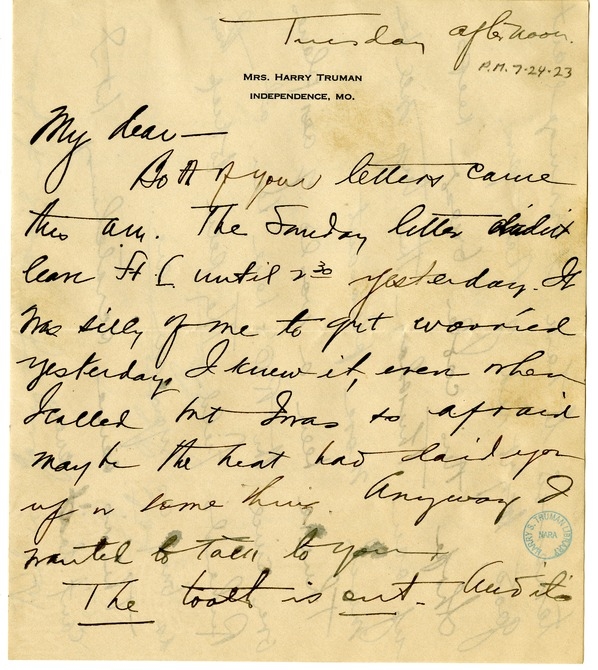 Tuesday afternoon.
P.M. 7-24-23
MRS. HARRY TRUMAN
INDEPENDENCE, MO.
My dear—
Both of your letters came
this am. The Sunday letter didn't
leave Ft. L until 2 30 yesterday. It
was silly of me to get worried
yesterday, I knew it, even when
I called but I was so afraid
maybe the heat had laid you
up or some thing. Anyway I
wanted to talk to you.
HARRY S. TRUMAN LIBRARY
NARA
The tooth is out. And its